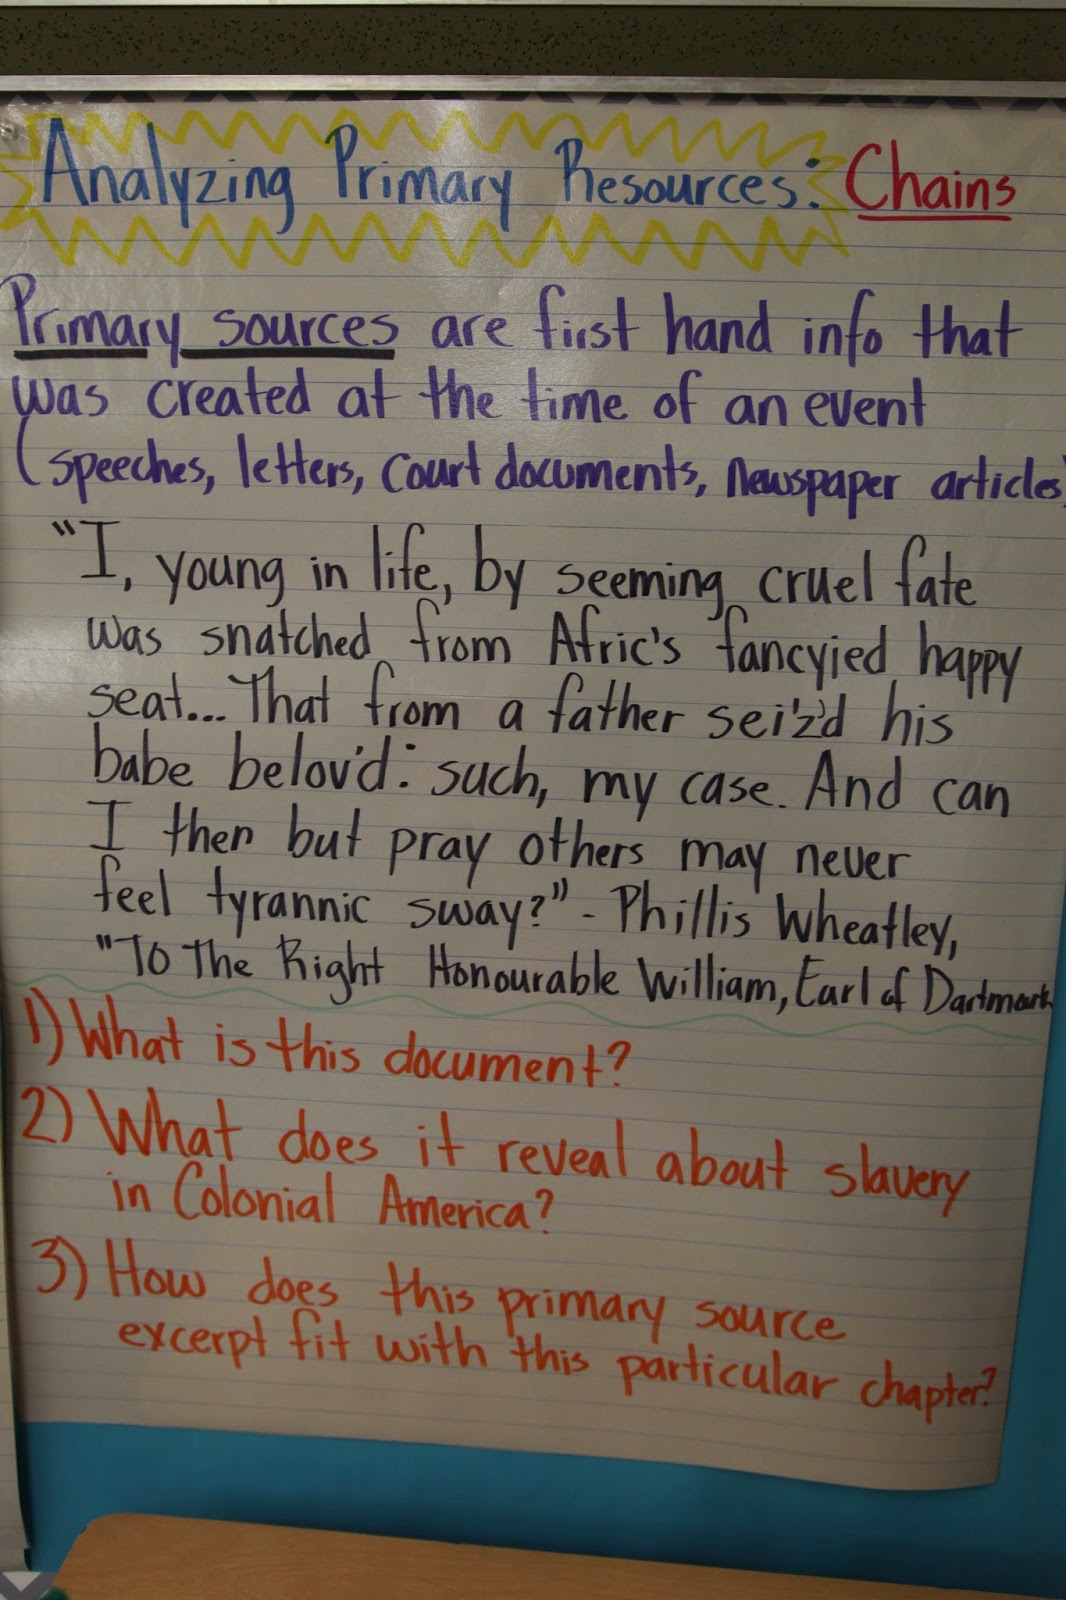 Analyzing Primary Resources: Chains
Primary sources are first hand info that
was created at the time of an event
(speeches, letters, court documents, newspaper articles)
"I, young in life, by seeming cruel fate
was snatched from Afric's fancyied happy
seat... That from a father seiz'd his
babe belov'd: such, my case. And can
I then but pray others may never
feel tyrannic sway?" - Phillis Wheatley,
"To The Right Honourable William, Earl of Dartmouth
1) What is this document?
2) What does it reveal about slavery
in Colonial America?
3) How does this primary source
excerpt fit with this particular chapter?